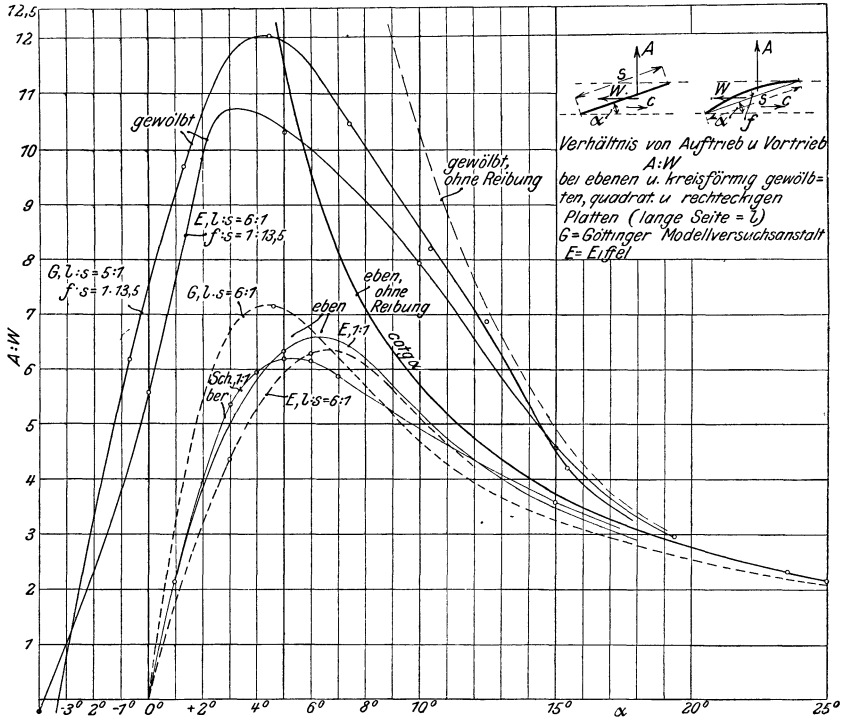 12,5
12
11
10
9
8
7
6
5
4
3
2
1
A:W
-3° 2° -1° 0° +2° 4° 6° 8° 10° 15° α 20° 25°
gewölbt
E, l:s=6:1
f:s=1:13,5
G, l:s=5:1
f:s=1:13,5
G, l:s=6:1
eben
E, 1:1
Sch, 1:1
ber
E, l:s=6:1
eben,
ohne
Reibung
cotg α
gewölbt,
ohne Reibung
A
s
W
c
α
A
W
s
c
α
f
Verhältnis von Auftrieb u Vortrieb
A:W
bei ebenen u. kreisförmig gewölb=
ten, quadrat. u rechteckigen
Platten (lange Seite = l)
G=Göttinger Modellversuchsanstalt
E= Eiffel